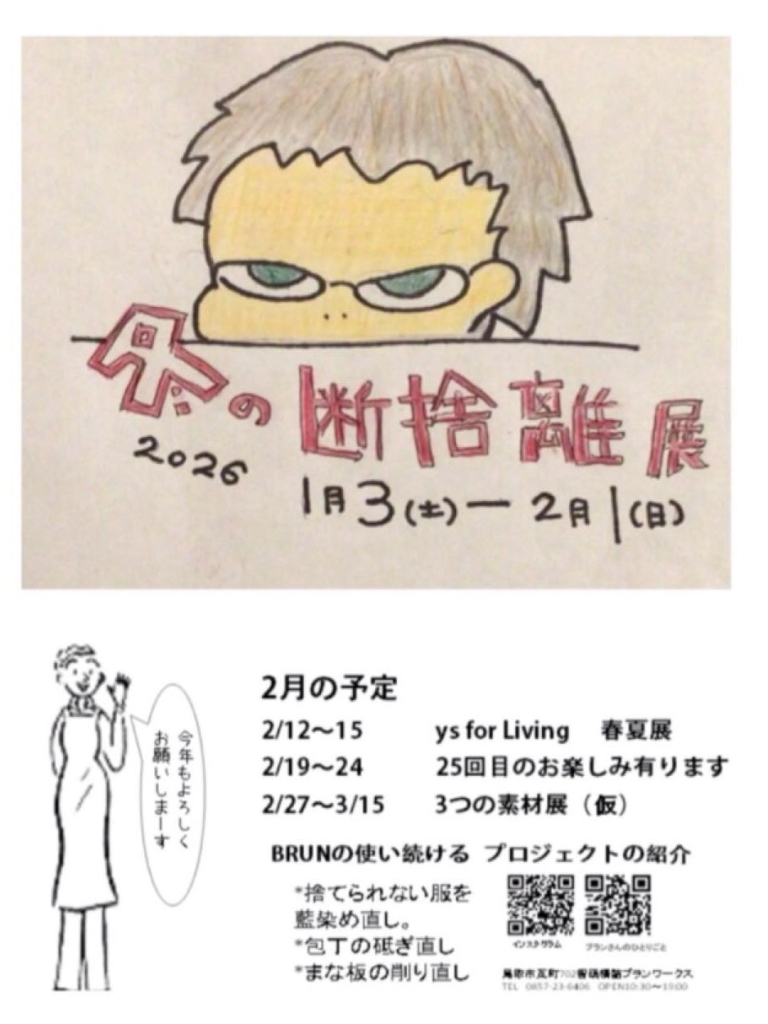 冬の断捨離展
2026
1月3(土)ー2月1(日)
今年もよろしく
お願いしまーす
2月の予定
2/12〜15 ys for Living 春夏展
2/19〜24 25回目のお楽しみ有ります
2/27〜3/15 3つの素材展（仮）
BRUNの使い続ける プロジェクトの紹介
*捨てられない服を
藍染め直し。
*包丁の砥ぎ直し
*まな板の削り直し
インスタグラム
ブランさんのひとりごと
鳥取市瓦町702 ブランワークス
TEL 0857-23-6406 OPEN10:30〜19:00